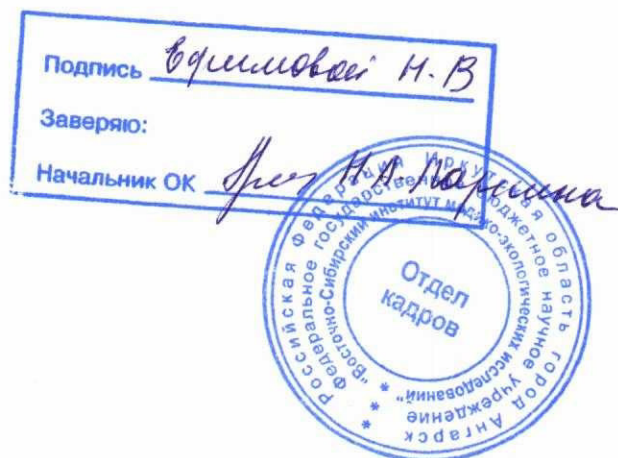 Подпись Ефимовой Н.В
Заверяю:
Начальник ОК Н.А. Паршина
Российская Федерация Иркутская область город Ангарск
Федеральное государственное бюджетное научное учреждение
"Восточно-Сибирский институт медико-экологических исследований"
Отдел
кадров